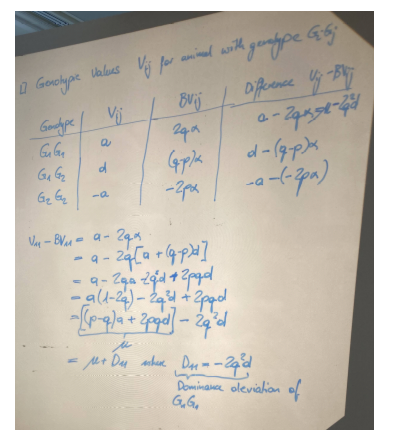 1) Genotypic Values Vij for animal with genotype GiGj
Genotype | Vij | BVij | Difference Vij - BVij
G1G1 | a | 2qα | a - 2qα = -2q²d
G1G2 | d | (q-p)α | d - (q-p)α
G2G2 | -a | -2pα | -a - (-2pα)
V11 - BV11 = a - 2qα
= a - 2q[a + (q-p)d]
= a - 2qa - 2q²d + 2pqd
= a(1-2q) - 2q²d + 2pqd
= [(p-q)a + 2pqd] - 2q²d
μ
= μ + D11 where D11 = -2q²d
Dominance deviation of
G1G1